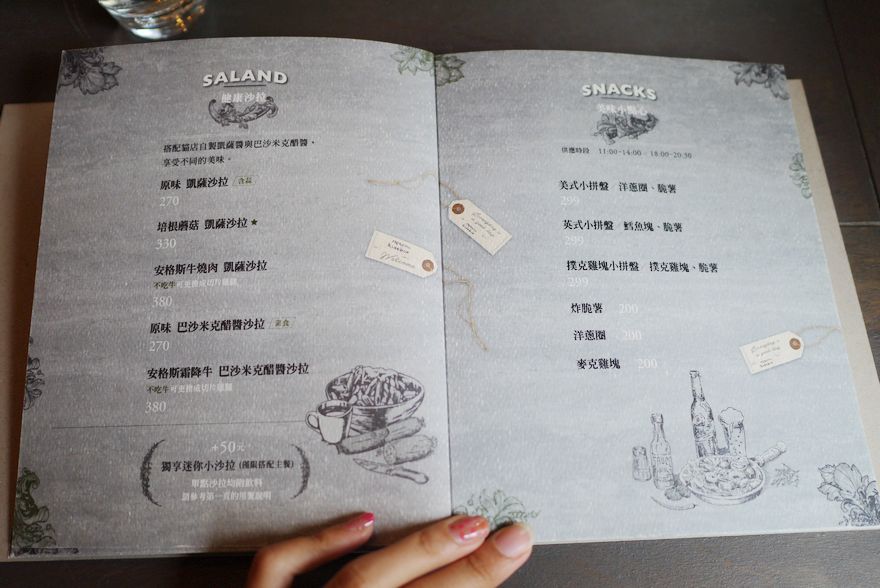 SALAND
健康沙拉
搭配貓店自製凱薩醬與巴沙米克醋醬、
享受不同的美味。
原味 凱薩沙拉
270
培根蘑菇 凱薩沙拉★
330
安格斯牛燒肉 凱薩沙拉
不吃牛可更換成切片雞腿
380
原味 巴沙米克醋醬沙拉 素食
270
安格斯霜降牛 巴沙米克醋醬沙拉
不吃牛可更換成切片雞腿
380
+50元
獨享迷你小沙拉 (僅限搭配主餐)
單點沙拉均附飲料
請參考第一頁的用餐說明
SNACKS
美味小點心
供應時段 11:00-14:00 18:00-20:30
美式小拼盤 洋蔥圈、脆薯
299
英式小拼盤 鱈魚塊、脆薯
299
撲克雞塊小拼盤 撲克雞塊、脆薯
299
炸脆薯 200
洋蔥圈 200
麥克雞塊 200
Welcome